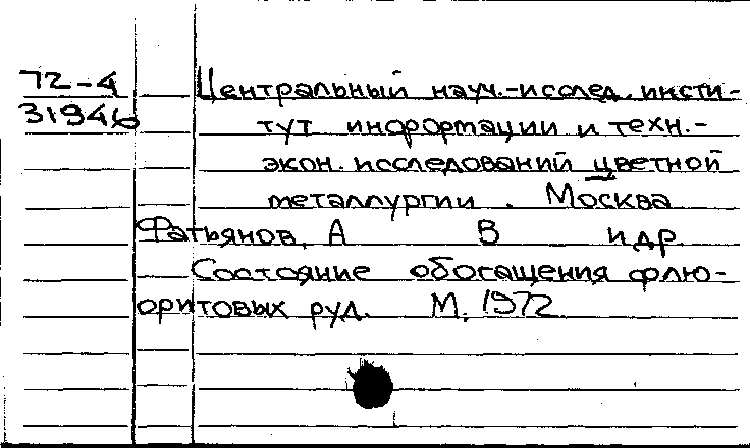 72-4 Центральный науч.-исслед. инсти-
31946 тут информации и техн.-
экон. исследований цветной
металлургии. Москва
Фатьянов, А В и др
Состояние обогащения флю-
оритовых руд. М, 1972